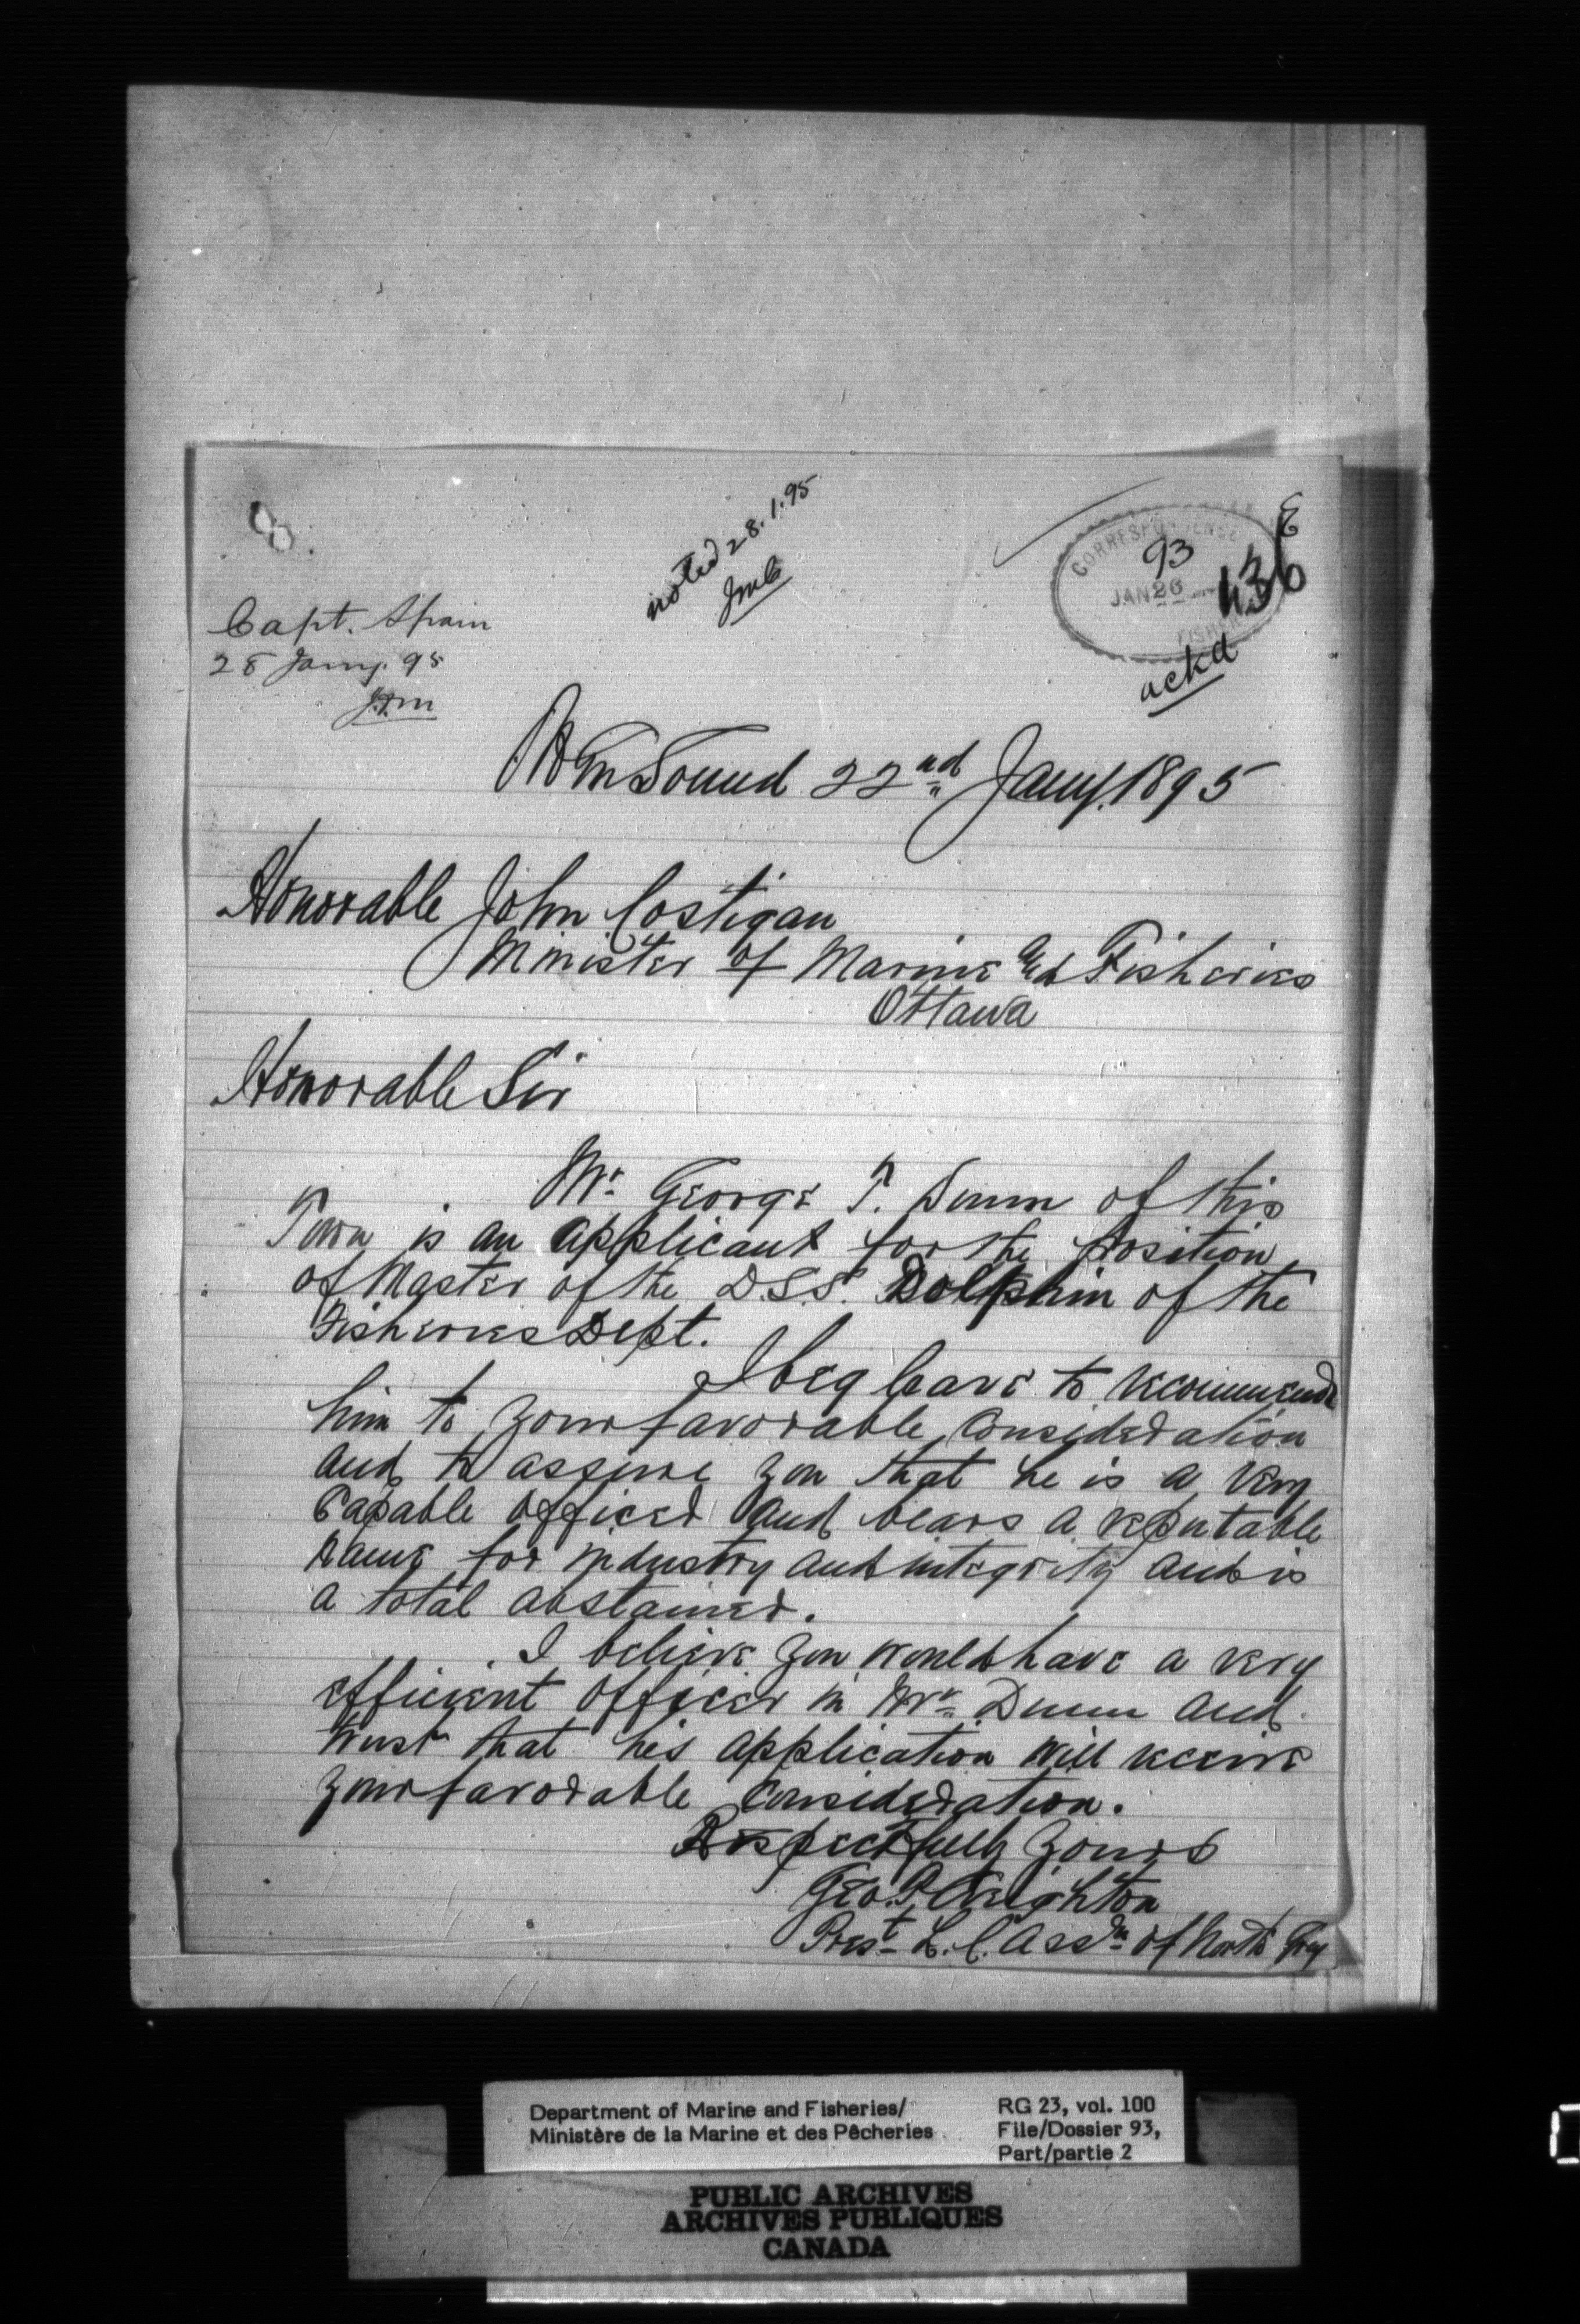 8.
noted 28.1.95
CORRESPONDENCE
93
JAN 26
FISHER
E
436
ackd
Capt. Spain
28 Jany. 95
Owen Sound 22nd Jany. 1895
Honorable John Costigan
Minister of Marine and Fisheries
Ottawa
Honorable Sir
Mr. George P. Dunn of this
Town is an applicant for the position
of Master of the D.S.S. Dolphin of the
Fisheries Dept.
I beg leave to recommend
him to your favorable consideration
and to assure you that he is a very
capable officer and bears a reputable
name for industry and integrity and is
a total abstainer.
I believe you would have a very
efficient officer in Mr. Dunn and
trust that his application will receive
your favorable consideration.
Respectfully yours
Geo. P. Creighton
Prest L. C. Assn of North Grey
Department of Marine and Fisheries/
Ministère de la Marine et des Pêcheries
RG 23, vol. 100
File/Dossier 93,
Part/partie 2
PUBLIC ARCHIVES
ARCHIVES PUBLIQUES
CANADA